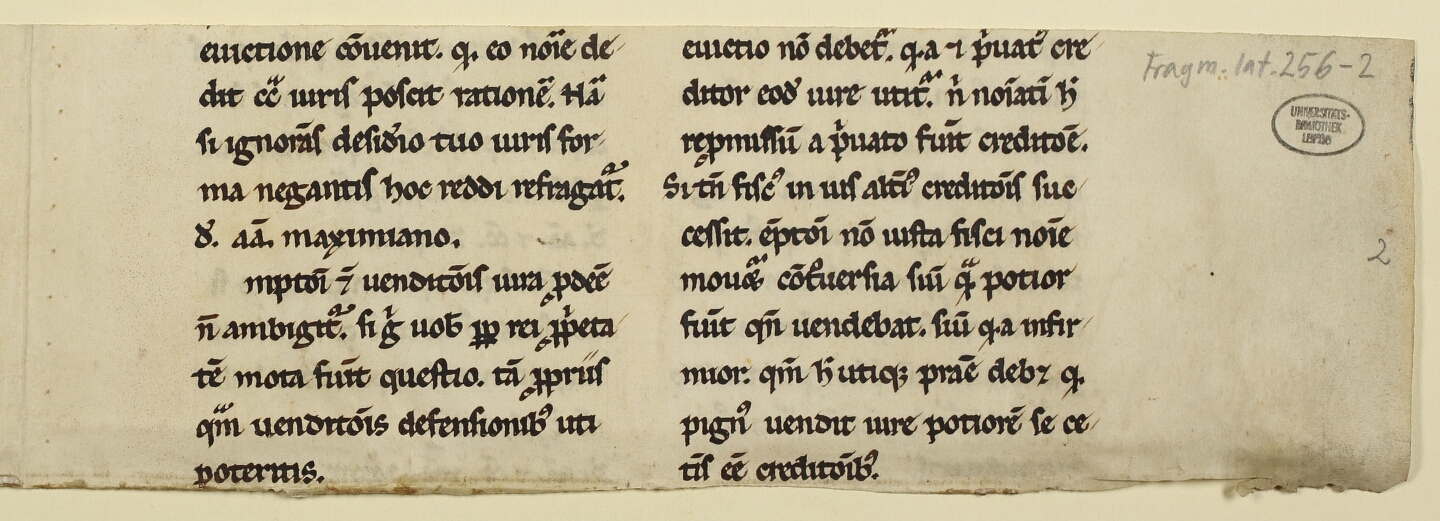 euictione cōuenit. q. eo noīe de
dit cē iuris poscit rationē. Nā
si ignorās desidio tuo iuris for
ma negantis hoc reddi refragat̄.
d. aā. maximiano.
mptoī ⁊ uenditōis iura pdeē
n̄ ambigit̄. si g̊ uob pp rei ppeta
tē mota fuīt questio. tā ppriis
qm̄ uenditōis defensionib⁹ uti
poteritis.
euictio nō debet̄. q.a ⁊ puat⁹ cre
ditor eod iure utit̄. n̄ noīatī h
repmissū a puato fuīt creditoē.
Si tn̄ fisc⁹ in ius alt̄i⁹ creditōis suc
cessit. ēptoī nō iusta fisci noīe
mouet̄ cōt̄uersia siū q̄ potior
fuīt qn̄ uendebat. siū q.a infir
mior. qm̄ h utiqꝫ praē deb⁊ q.
pign⁹ uendit iure potiorē se ce
tis eē creditoīb⁹.
Fragm. lat. 256-2
UNIVERSITÄTS-
BIBLIOTHEK
LEIPZIG
2